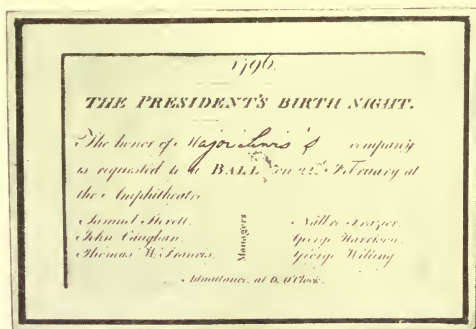 1796.
THE PRESIDENT'S BIRTH NIGHT.
The honor of Major Lewis's company
is requested to a BALL on 22d February at
the Amphitheatre
Samuel Sterett.
John Vaughan.
Thomas W. Francis.
Managers
George Harrison.
George
Admittance, at 6. O'Clock.